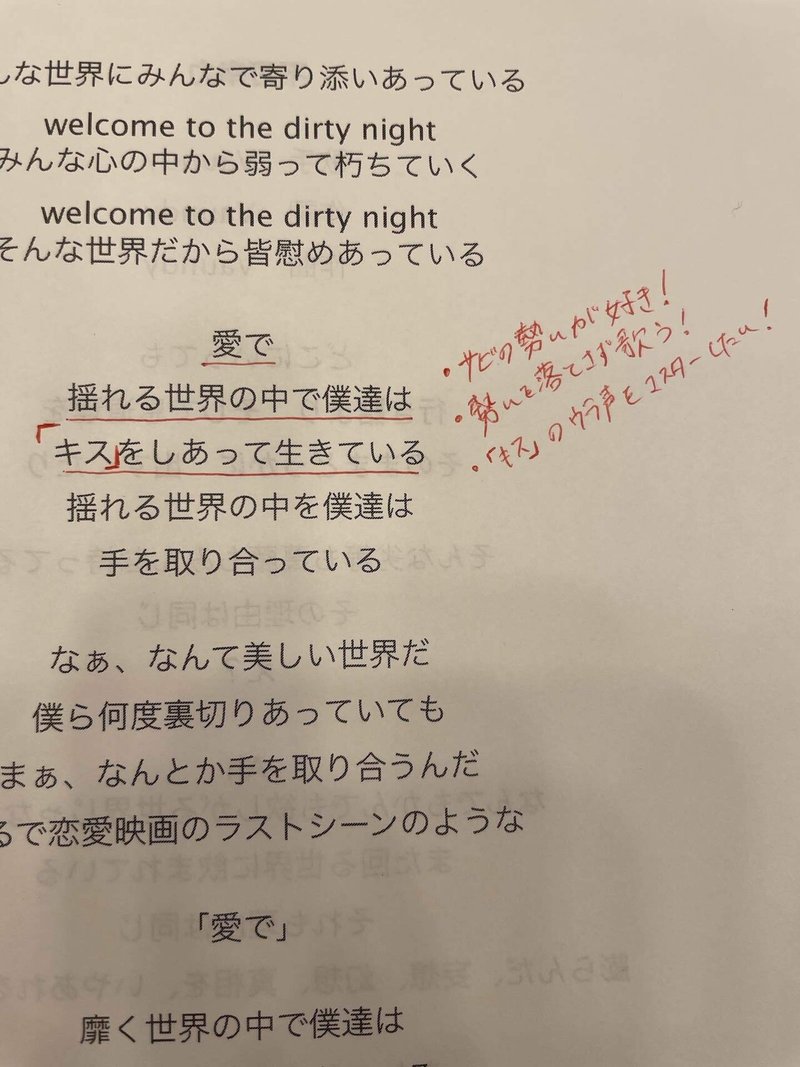 んな世界にみんなで寄り添いあっている
welcome to the dirty night
みんな心の中から弱って朽ちていく
welcome to the dirty night
そんな世界だから皆慰めあっている
愛で
揺れる世界の中で僕達は
「キス」をしあって生きている
揺れる世界の中を僕達は
手を取り合っている
・サビの勢いが好き!
・勢いを落とさず歌う!
・「キス」のウラ声をマスターしたい!
なぁ、なんて美しい世界だ
僕ら何度裏切りあっていても
まぁ、なんとか手を取り合うんだ
るで恋愛映画のラストシーンのような
「愛で」
靡く世界の中で僕達は